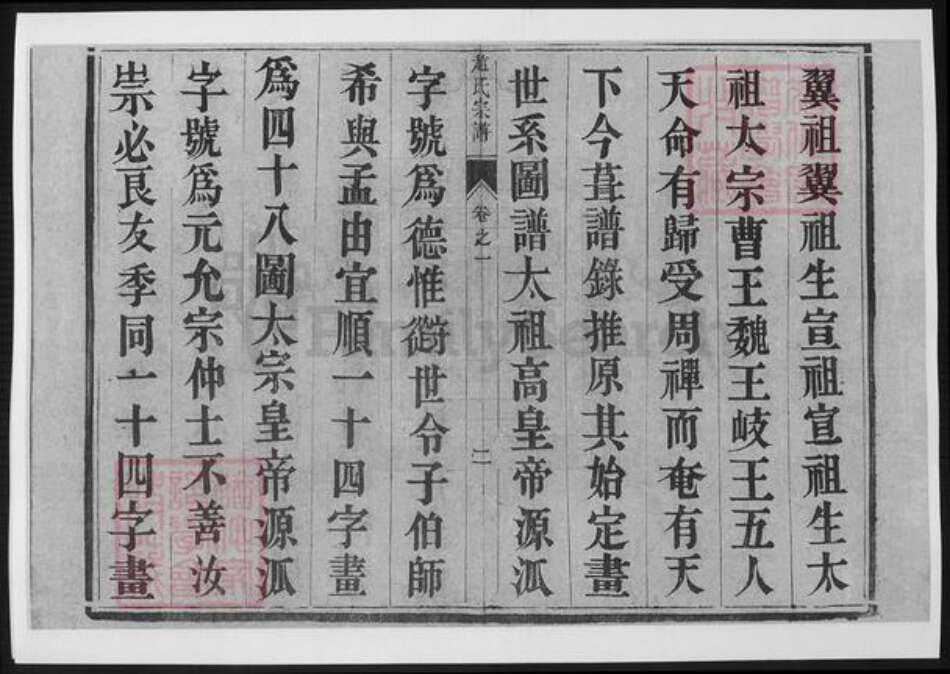 翼祖翼祖生宣祖宣祖生太
祖太宗曹王魏王岐王五人
天命有歸受周禪而奄有天
下今葺譜錄推原其始定畫
世系圖譜太祖高皇帝源泒
趙氏宗譜 卷之一 二
字號爲德惟從世令子伯師
希與孟由宜順一十四字畫
爲四十八圖太宗皇帝源泒
字號爲元允宗仲士不善汝
崇必良友季同一十四字畫